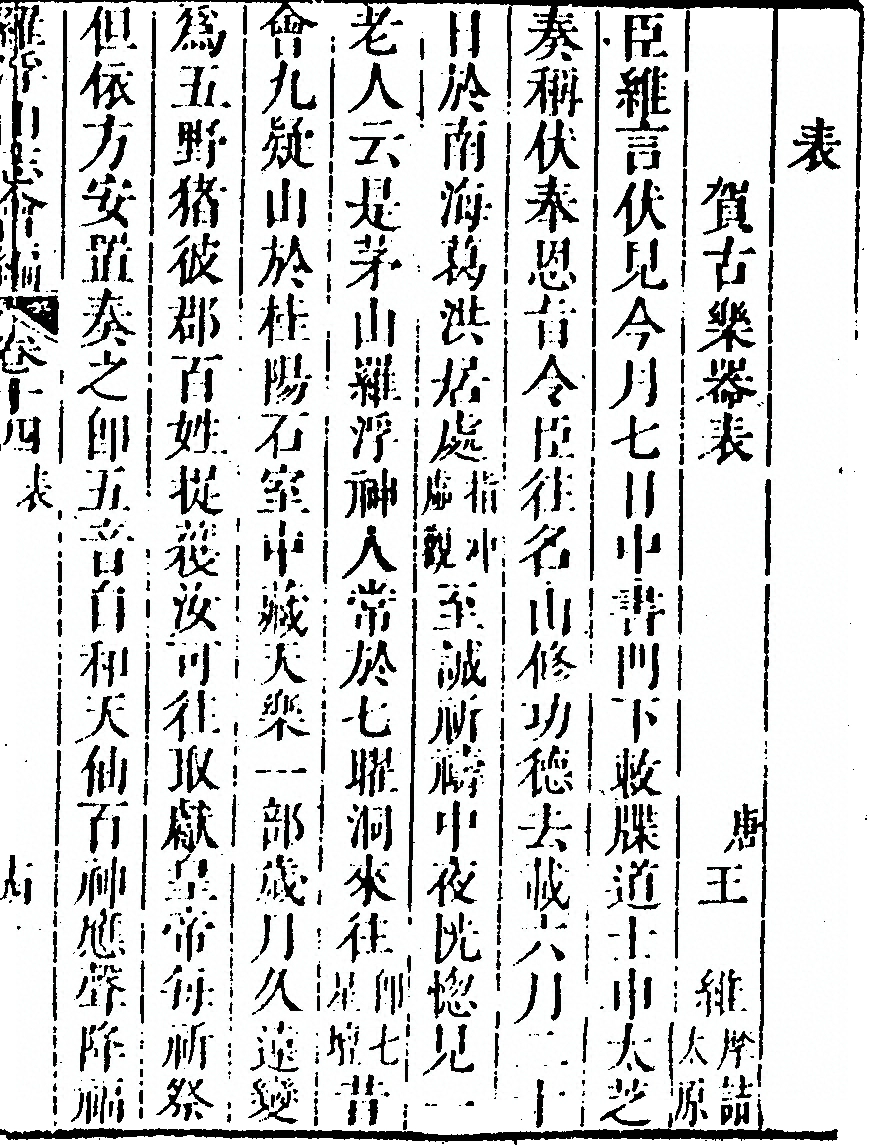 表
賀古樂器表
唐王維摩詰太原
臣維言伏見今月七日中書門下敕牒道士申太芝
奏稱伏奉恩旨令臣往名山修功德去載六月二十
日於南海葛洪居處指冲虛觀至誠祈禱中夜恍惚見一
老人云是茅山羅浮神人常於七曜洞來往卽七星壇昔
會九疑山於桂陽石室中藏天樂一部歲月久遠變
爲五野猪彼郡百姓捉獲汝可往取獻皇帝每祈祭
但依方安置奏之卽五音自和天仙百神應聲降福
羅浮山志會編
卷十四
表